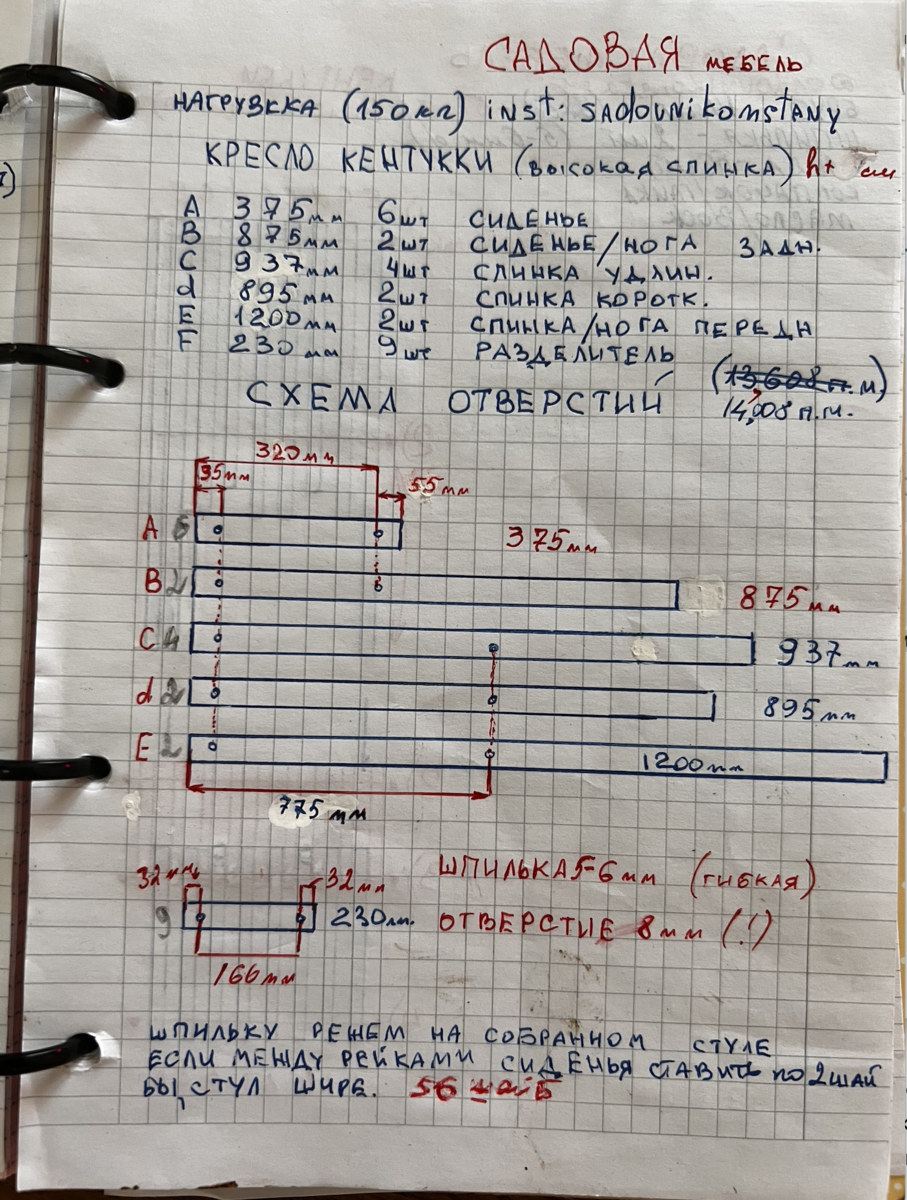 САДОВАЯ МЕБЕЛЬ
НАГРУЗККА (150кг) inst: sadovnikomstany
КРЕСЛО КЕНТУККИ (ВЫСОКАЯ СПИНКА) h+ см
A 375мм 6шт СИДЕНЬЕ
B 875мм 2шт СИДЕНЬЕ/НОГА ЗАДН.
C 937мм 4шт СПИНКА УДЛИН.
d 895мм 2шт СПИНКА КОРОТК.
E 1200мм 2шт СПИНКА/НОГА ПЕРЕДН
F 230мм 9шт РАЗДЕЛИТЕЛЬ
(13,608 п.м)
СХЕМА ОТВЕРСТИЙ 14,008 п.м.
320мм
35мм 55мм
A 6 375мм
B 2 875мм
C 4 937мм
d 2 895мм
E 2 1200мм
775мм
32мм 32мм ШПИЛЬКА 5-6мм (ГИБКАЯ)
9 230мм. ОТВЕРСТИЕ 8мм (!)
166мм
ШПИЛЬКУ РЕЖЕМ НА СОБРАННОМ СТУЛЕ
ЕСЛИ МЕЖДУ РЕЙКАМИ СИДЕНЬЯ СТАВИТЬ ПО 2ШАЙ
БЫ, СТУЛ ШИРЕ. 56 шайб